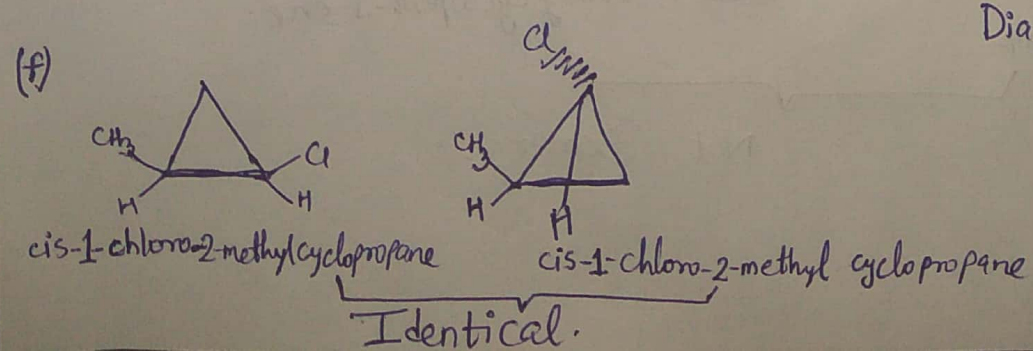 Dia
(f)
Cl
CH3
Cl
H
H
CH3
H
H
cis-1-chloro-2-methylcyclopropane
cis-1-chloro-2-methyl cyclopropane
Identical.